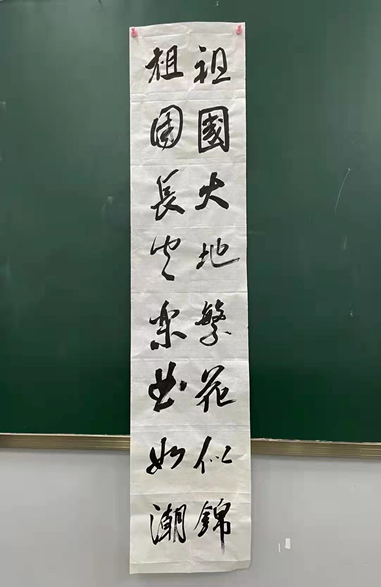 祖國大地繁花似錦
祖國長安樂曲如潮